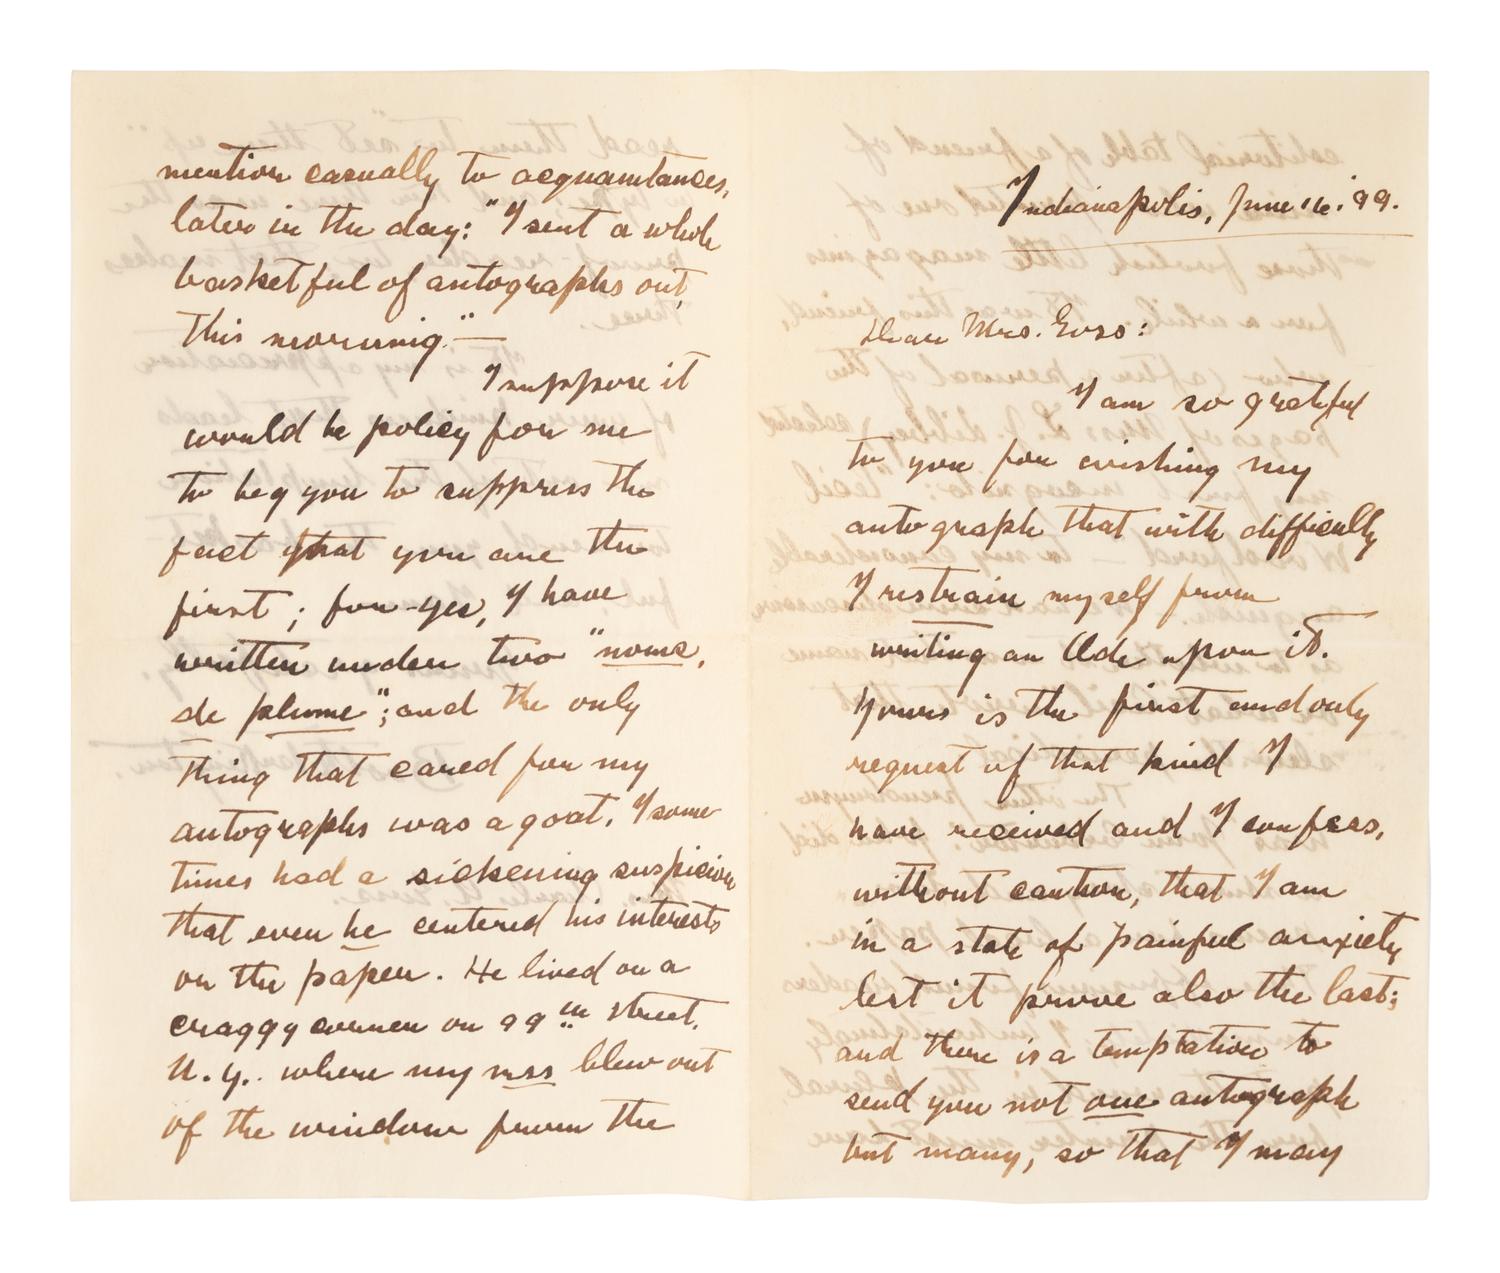 Indianapolis, June 16. '99.
Dear Mrs. Evss:
I am so grateful
to you for wishing my
autograph that with difficulty
I restrain myself from
writing an Ode upon it.
Yours is the first and only
request of that kind I
have received and I confess,
without caution, that I am
in a state of painful anxiety
lest it prove also the last;
and there is a temptation to
send you not one autograph
but many, so that I may
mention casually to acquaintances,
later in the day: "I sent a whole
basketful of autographs out,
this morning." —
I suppose it
would be policy for me
to beg you to suppress the
fact that you are the
first; for-yes, I have
written under two "noms,
de plume"; and the only
thing that cared for my
autographs was a goat. I some
times had a sickening suspicion
that even he centered his interests
on the paper. He lived on a
craggy corner on 99th street,
N. Y. where my mss blew out
of the window from the